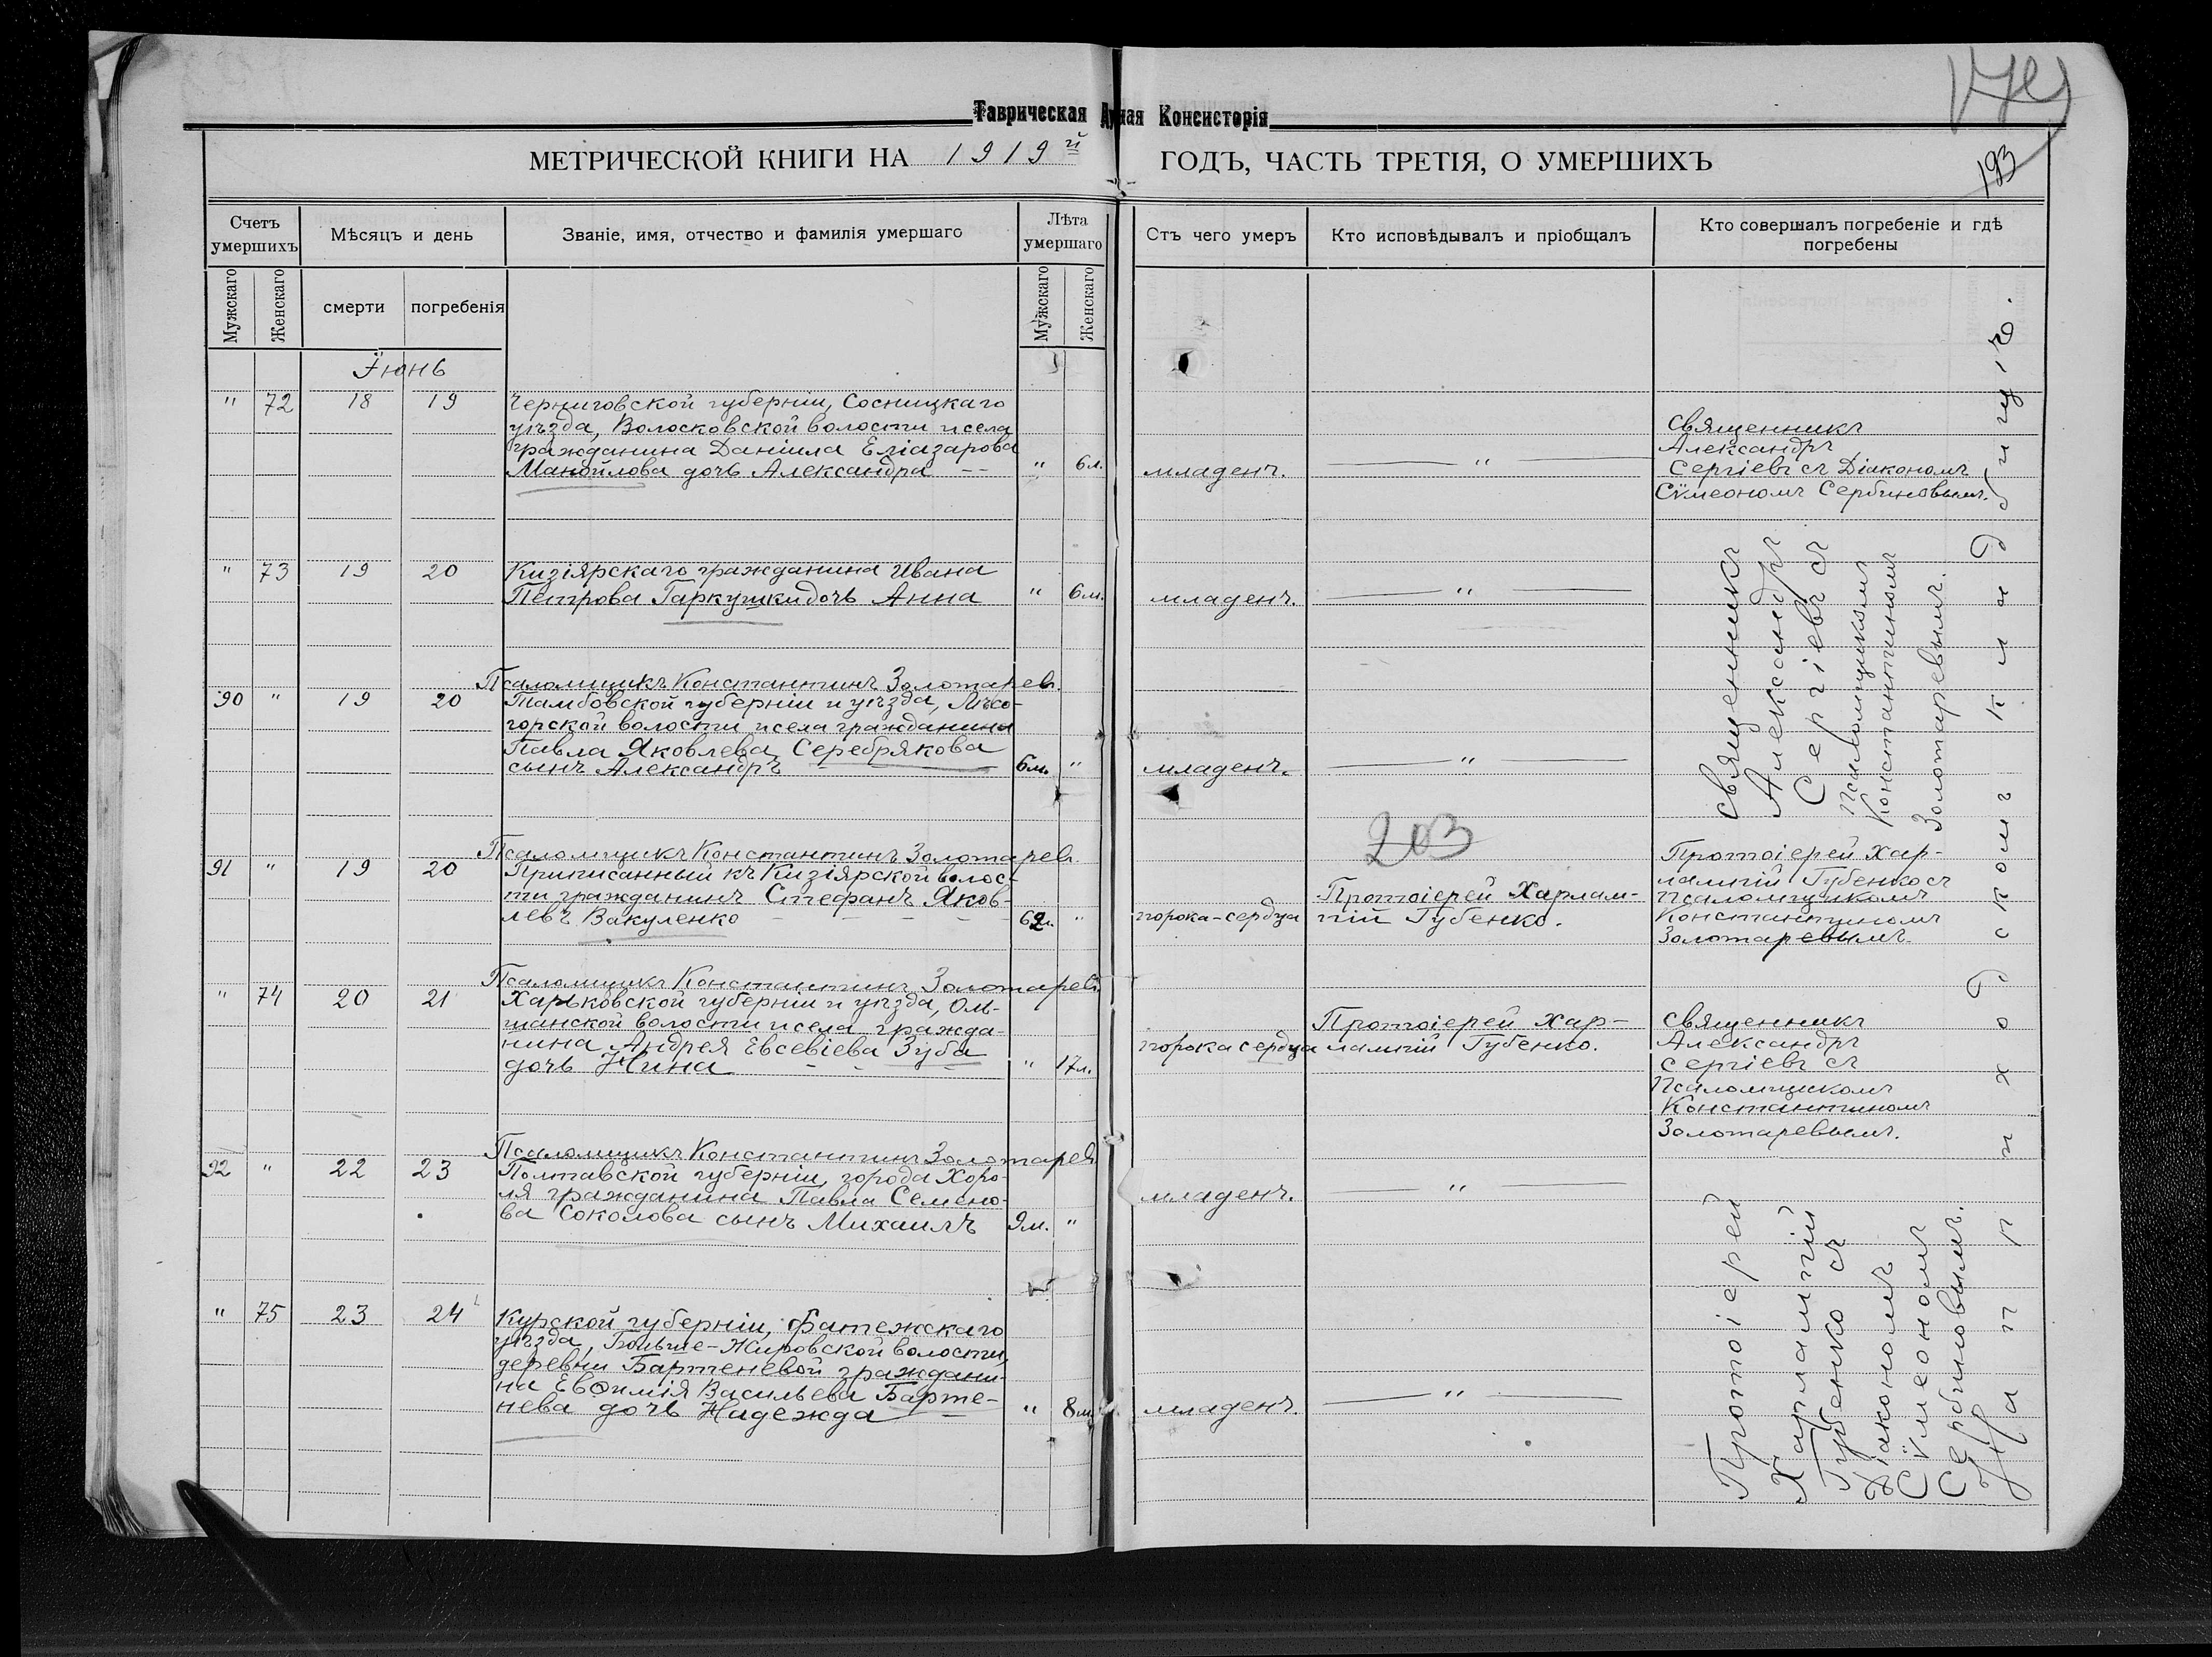 Таврическая Д ная Консисторія
МЕТРИЧЕСКОЙ КНИГИ НА 1919й ГОДЪ, ЧАСТЬ ТРЕТІЯ, О УМЕРШИХЪ
193
Счетъ умершихъ
Мѣсяцъ и день
Званіе, имя, отчество и фамилія умершаго
Лѣта умершаго
Стъ чего умеръ
Кто исповѣдывалъ и пріобщалъ
Кто совершалъ погребеніе и гдѣ
погребены
Мужскаго
Женскаго
смерти
погребенія
Мужскаго
Женскаго
Іюнь
" 72 18 19 Черниговской губерніи, Сосницкаго
уѣзда, Волосковской волости и села
гражданина Даніила Еліазарова
Манойлова дочь Александра — " 6л. младенч. — " —
Священникъ
Александръ
Сергіевъ съ Діакономъ
Сѵмеономъ Сербиновымъ.
" 73 19 20 Кизіярскаго гражданина Ивана
Петрова Гаркушки дочь Анна " 6м. младенч. — " —
Священникъ
Александръ
Сергіевъ съ
псаломщикомъ
Константиномъ
Золотаревымъ.
Псаломщикъ Константинъ Золотаревъ.
90 " 19 20 Тамбовской губерніи и уѣзда, Лысо-
горской волости и села гражданина
Павла Яковлева Серебрякова
сынъ Александръ 6м. " младенч. — " —
203
Псаломщикъ Константинъ Золотаревъ.
91 " 19 20 Приписанный къ Кизіярской волос-
ти гражданинъ Стефанъ Яков-
левъ Вакуленко - - - 62л. " порока-сердца
Протоіерей Харлам-
пій Губенко.
Протоіерей Хар-
лампій Губенко съ
псаломщикомъ
Константиномъ
Золотаревымъ.
Псаломщикъ Константинъ Золотаревъ.
" 74 20 21 Харьковской губерніи и уѣзда, Оль-
шанской волости и села гражда-
нина Андрея Евсевіева Зуба
дочь Нина - - - " 17л. порока сердца
Протоіерей Хар-
лампій Губенко.
Священникъ
Александръ
Сергіевъ съ
Псаломщикомъ
Константиномъ
Золотаревымъ.
Псаломщикъ Константинъ Золотаревъ
92 " 22 23 Полтавской губерніи, города Хоро-
ля гражданина Павла Семено-
ва Соколова сынъ Михаилъ 9м. " младенч. — " —
" 75 23 24 Курской губерніи, Фатежскаго
уѣзда, Больше-Жировской волости,
деревни Бартеневой граждани-
на Евѳимія Васильева Барте-
нева дочь Надежда " 8м. младенч. — " —
Протоіерей
Харлампій
Губенко съ
Діакономъ
Сѵмеономъ
Сербиновымъ.
На приходскомъ кладбищѣ.